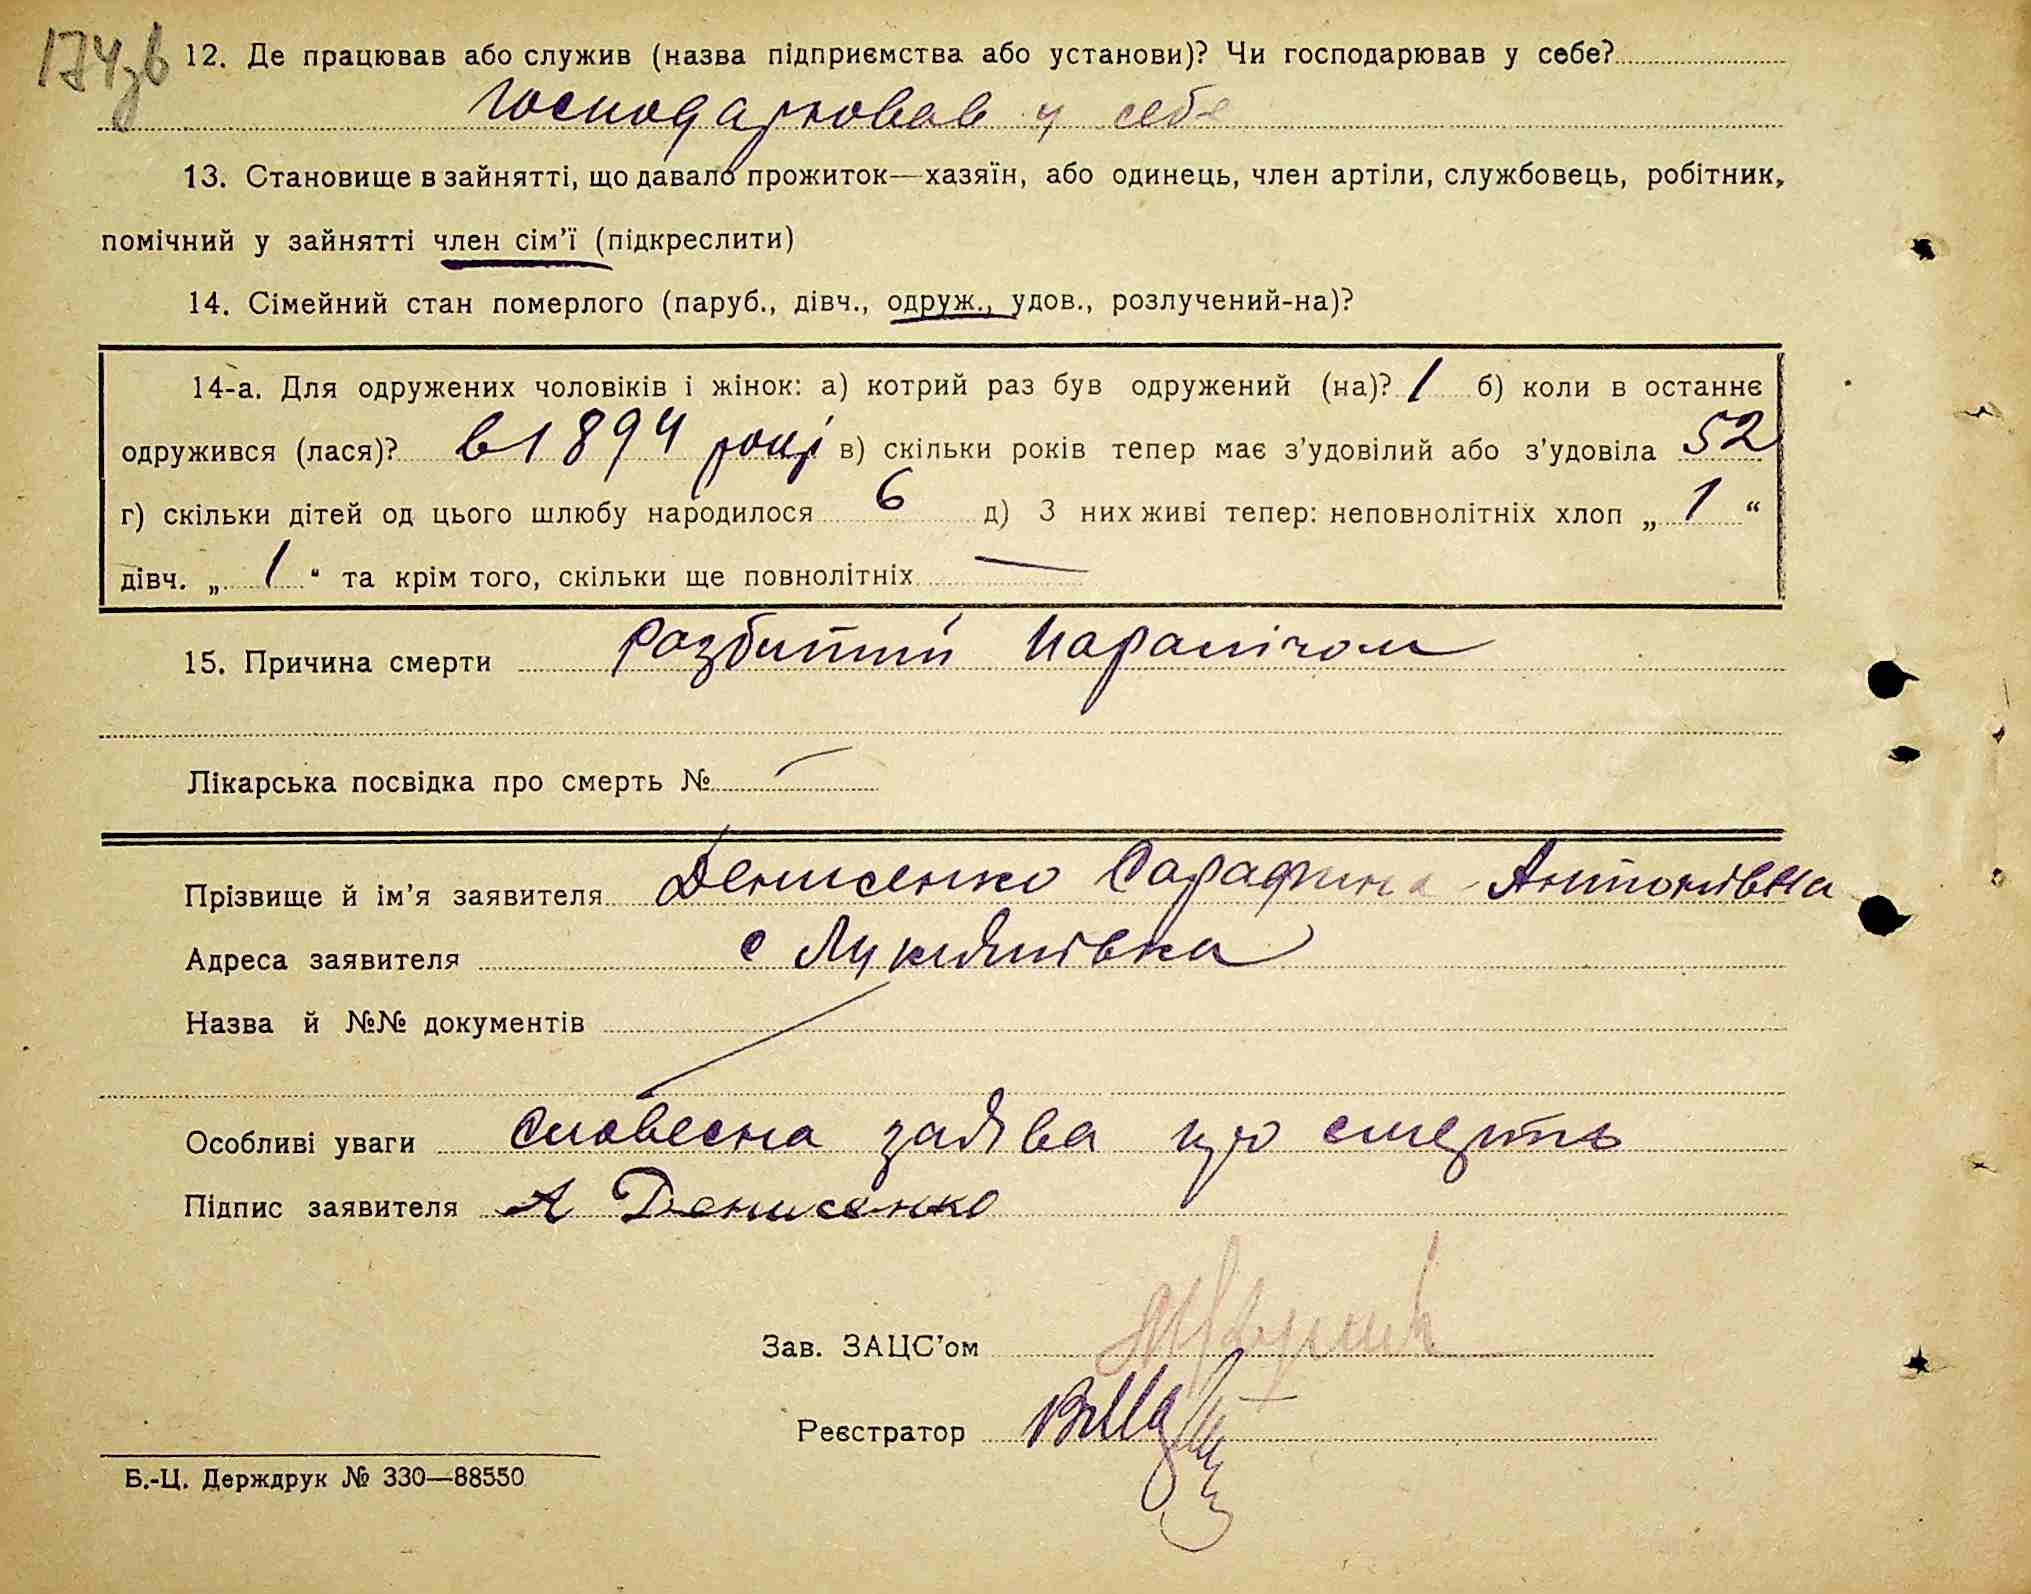 174зв
12. Де працював або служив (назва підприємства або установи)? Чи господарював у себе?
Господарював у себе
13. Становище в зайнятті, що давало прожиток—хазяїн, або одинець, член артіли, службовець, робітник,
помічний у зайнятті член сім'ї (підкреслити)
14. Сімейний стан померлого (паруб., дівч., одруж., удов., розлучений-на)?
14-а. Для одружених чоловіків і жінок: а) котрий раз був одружений (на)? 1 б) коли в останнє
одружився (лася)? в 1894 році в) скільки років тепер має з'удовілий або з'удовіла 52
г) скільки дітей од цього шлюбу народилося 6 д) З них живі тепер: неповнолітніх хлоп „ 1 “
дівч. „ 1 “ та крім того, скільки ще повнолітніх —
15. Причина смерти розбитий паралічом
Лікарська посвідка про смерть № —
Прізвище й ім'я заявителя Денисенко Сарафина Антонівна
Адреса заявителя с Лукяшівка
Назва й №№ документів
Особливі уваги словесна заява про смерть
Підпис заявителя А Денисенко
Зав. ЗАЦС'ом
Реєстратор
Б.-Ц. Держдрук № 330—88550